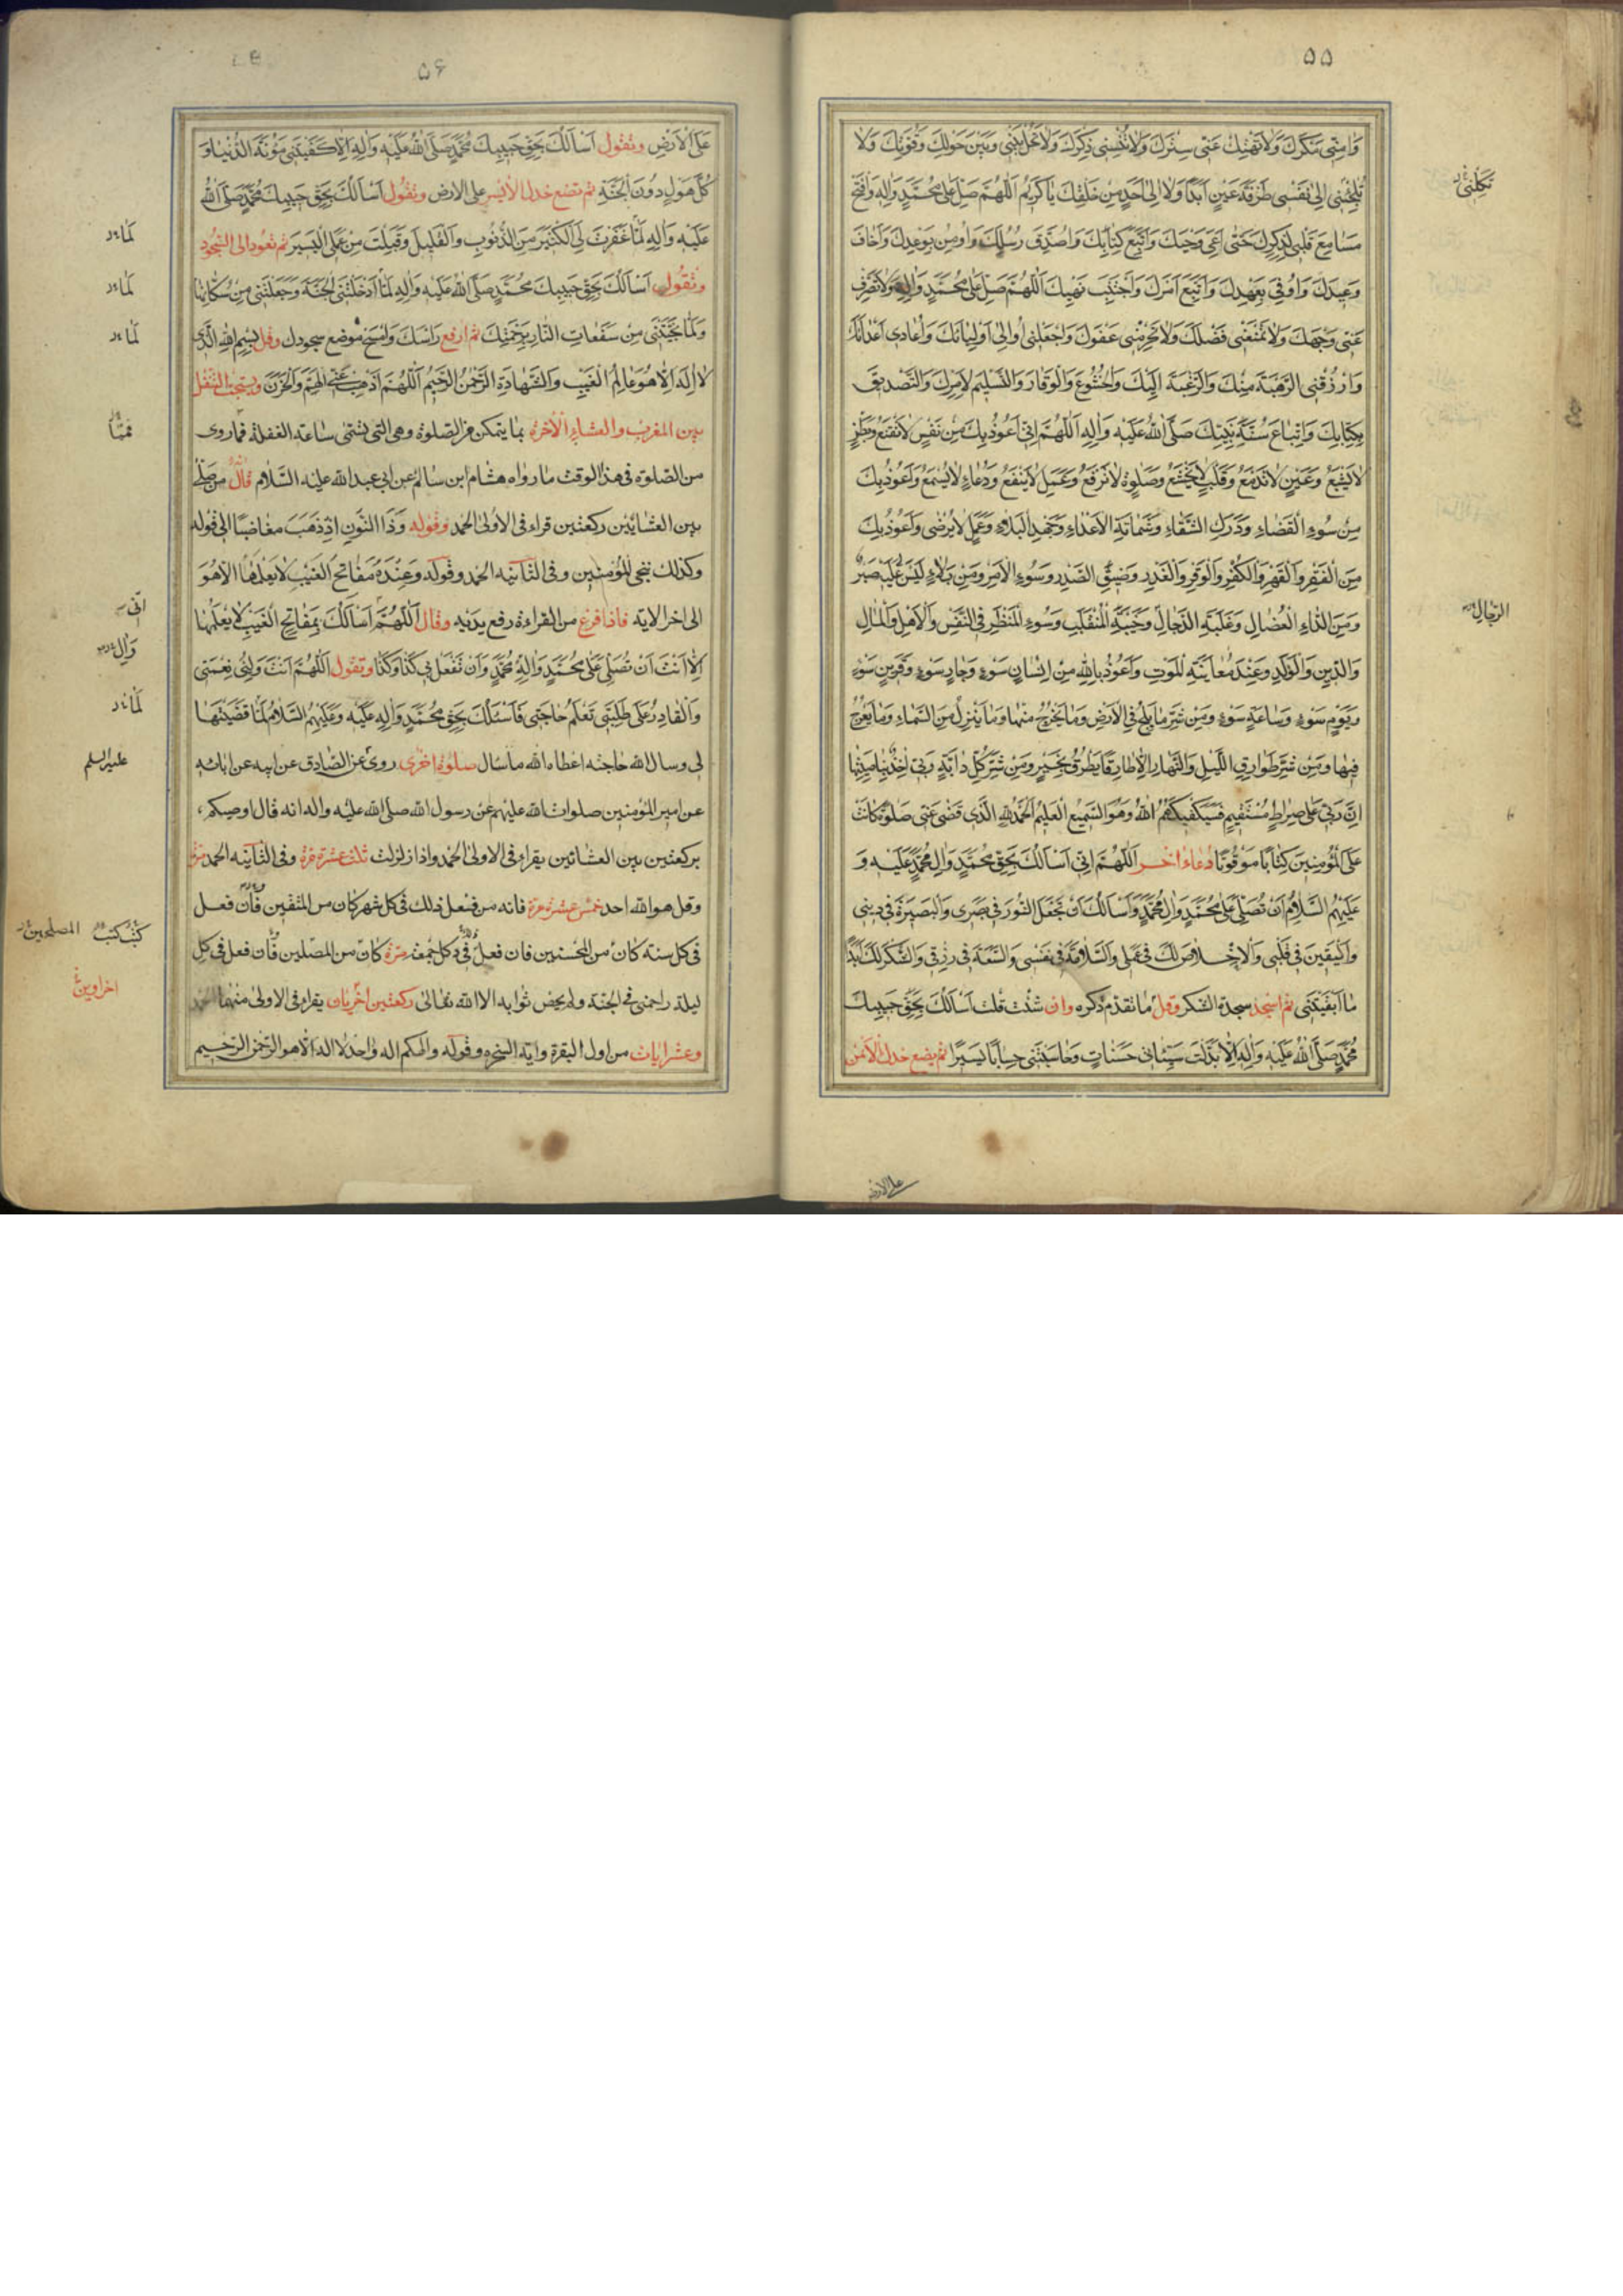 ۵۵
وَامِنّى مَكْرَكَ وَلاتَهْتِكْ عَنّى سِتْرَكَ وَلاتُنْسِنى ذِكْرَكَ وَلاتَحُلْ بَيْنى وَبَيْنَ حَوْلِكَ وَقُوَّتِكَ وَلا
تُلْجِئْنى اِلى نَفْسى طَرْفَةَ عَيْنٍ اَبَدًا وَلا اِلى اَحَدٍ مِنْ خَلْقِكَ يا كَرِيمُ اَللّهُمَّ صَلِّ عَلى مُحَمَّدٍ وَالِهِ وَافْتَحْ
تكلنى
مَسامِعَ قَلْبى لِذِكْرِكَ حَتّى اَعِىَ وَحْيَكَ وَاَتَّبِعَ كِتابَكَ وَاُصَدِّقَ رُسُلَكَ وَاُومِنَ بِوَعْدِكَ وَاَخافَ
وَعِيدَكَ وَاُوفِىَ بِعَهْدِكَ وَاَتَّبِعَ اَمْرَكَ وَاَجْتَنِبَ نَهْيَكَ اَللّهُمَّ صَلِّ عَلى مُحَمَّدٍ وَالِهِ وَلاتَصْرِفْ
عَنّى وَجْهَكَ وَلاتَمْنَعْنى فَضْلَكَ وَلاتَحْرِمْنى عَفْوَكَ وَاجْعَلْنى اُوالِى اَوْلِيائَكَ وَاُعادى اَعْدائَكَ
وَارْزُقْنِى الرَّهْبَةَ مِنْكَ وَالرَّغْبَةَ اِلَيْكَ وَالْخُشُوعَ وَالْوَقارَ وَالتَّسْلِيمَ لِاَمْرِكَ وَالتَّصْدِيقَ
بِكِتابِكَ وَاتِّباعَ سُنَّةِ نَبِيِّكَ صَلَّى اللهُ عَلَيْهِ وَالِهِ اَللّهُمَّ اِنّى اَعُوذُ بِكَ مِنْ نَفْسٍ لاتَقْنَعُ وَبَطْنٍ
لايَشْبَعُ وَعَيْنٍ لاتَدْمَعُ وَقَلْبٍ لايَخْشَعُ وَصَلوةٍ لاتُرْفَعُ وَعَمَلٍ لايَنْفَعُ وَدُعاءٍ لايُسْمَعُ وَاَعُوذُ بِكَ
مِنْ سُوءِ الْقَضاءِ وَدَرَكِ الشَّقاءِ وَشَماتَةِ الْاَعْداءِ وَجَهْدِ الْبَلاءِ وَعَمَلٍ لايُرْضى وَاَعُوذُ بِكَ
مِنَ الْفَقْرِ وَالْقَهْرِ وَالْكُفْرِ وَالْوَقْرِ وَالْغَدْرِ وَضِيقِ الصَّدْرِ وَسُوءِ الْاَمْرِ وَمِنْ بَلاءٍ لَيْسَ عَلَيْهِ صَبْرٌ
وَمِنَ الدّاءِ الْعُضالِ وَغَلَبَةِ الدَّجّالِ وَخَيْبَةِ الْمُنْقَلَبِ وَسُوءِ الْمَنْظَرِ فِى النَّفْسِ وَالْاَهْلِ وَالْمالِ
الرجال
وَالدِّينِ وَالْوَلَدِ وَعِنْدَ مُعايَنَةِ الْمَوْتِ وَاَعُوذُ بِاللهِ مِنْ اِنْسانِ سَوْءٍ وَجارِ سَوْءٍ وَقَرِينِ سَوْءٍ
وَيَوْمِ سَوْءٍ وَساعَةِ سَوْءٍ وَمِنْ شَرِّ مايَلِجُ فِى الْاَرْضِ وَمايَخْرُجُ مِنْها وَمايَنْزِلُ مِنَ السَّماءِ وَمايَعْرُجُ
فِيها وَمِنْ شَرِّ طَوارِقِ اللَّيْلِ وَالنَّهارِ اِلّا طارِقًا يَطْرُقُ بِخَيْرٍ وَمِنْ شَرِّ كُلِّ دابَّةٍ رَبّى اخِذٌ بِناصِيَتِها
اِنَّ رَبّى عَلى صِراطٍ مُسْتَقِيمٍ فَسَيَكْفِيكَهُمُ اللهُ وَهُوَ السَّمِيعُ الْعَلِيمُ اَلْحَمْدُ لِلّهِ الَّذى قَضى عَنّى صَلوةً كانَتْ
عَلَى الْمُؤْمِنِينَ كِتابًا مَوْقُوتًا دُعاءٌ اخَر اَللّهُمَّ اِنّى اَسْاَلُكَ بِحَقِّ مُحَمَّدٍ وَالِ مُحَمَّدٍ عَلَيْهِ وَ
عَلَيْهِمُ السَّلامُ اَنْ تُصَلِّىَ عَلى مُحَمَّدٍ وَالِ مُحَمَّدٍ وَاَسْاَلُكَ اَنْ تَجْعَلَ النُّورَ فى بَصَرى وَالْبَصِيرَةَ فى دِينى
وَالْيَقِينَ فى قَلْبى وَالْاِخْلاصَ لَكَ فى عَمَلى وَالسَّلامَةَ فى نَفْسى وَالسَّعَةَ فى رِزْقى وَالشُّكْرَ لَكَ اَبَدًا
مااَبْقَيْتَنى ثم اسجد سجدة الشكر وقل ماتقدم ذكره وان شئت قلت اَسْاَلُكَ بِحَقِّ حَبِيبِكَ
مُحَمَّدٍ صَلَّى اللهُ عَلَيْهِ وَالِهِ اِلّا بَدَّلْتَ سَيِّئاتى حَسَناتٍ وَحاسَبْتَنى حِسابًا يَسِيرًا ثم يضع خدك الايمن
على الارض
۵۶
عَلَى الْاَرْضِ وتقول اَسْاَلُكَ بِحَقِّ حَبِيبِكَ مُحَمَّدٍ صَلَّى اللهُ عَلَيْهِ وَالِهِ اِلّا كَفَيْتَنى مَؤُنَةَ الدُّنْيا وَ
كُلَّ هَوْلٍ دُونَ الْجَنَّةِ ثم تضع خدك الايسر على الارض وتقول اَسْاَلُكَ بِحَقِّ حَبِيبِكَ مُحَمَّدٍ صَلَّى اللهُ
عَلَيْهِ وَالِهِ لَمّا غَفَرْتَ لِىَ الْكَثِيرَ مِنَ الذُّنُوبِ وَالْقَلِيلَ وَقَبِلْتَ مِنْ عَمَلِى الْيَسِيرَ ثم تعود الى السجود
لَما
وتقول اَسْاَلُكَ بِحَقِّ حَبِيبِكَ مُحَمَّدٍ صَلَّى اللهُ عَلَيْهِ وَالِهِ لَمّا اَدْخَلْتَنِى الْجَنَّةَ وَجَعَلْتَنى مِنْ سُكّانِها
لَما
وَلَمّا نَجَّيْتَنى مِنْ سَفَعاتِ النّارِ بِرَحْمَتِكَ ثم ارفع رَاسَكَ وَامْسَحْ موضع سجودك وقل بِسْمِ اللهِ الَّذى
لَما
لااِلهَ اِلّا هُوَ عالِمُ الْغَيْبِ وَالشَّهادَةِ الرَّحْمنُ الرَّحِيمُ اَللّهُمَّ اَذْهِبْ عَنِّى الْهَمَّ وَالْحَزَنَ ويستحب التنفل
بين المغرب والعشاء الاخرة بما يتمكن من الصلوة وهى التى تسمى ساعة الغفلة فماروى
فمما
من الصلوة فى هذا الوقت مارواه هشام ابن سالم عن ابى عبدالله عليه السّلام قال من صلى
بين العشائين ركعتين قراء فى الاولى الحمد وقوله وَذَا النُّونِ اِذْ ذَهَبَ مغاضبًا الى قوله
وكذلك ننجى المؤمنين وفى الثانية الحمد وقوله وَعِنْدَهُ مَفاتِحُ الْغَيْبِ لايَعْلَمُها اِلّا هُوَ
الى اخر الاية فاذا فرغ من القراءة رفع يديه وقال اَللّهُمَّ اَسْاَلُكَ بِمَفاتِحِ الْغَيْبِ لايَعْلَمُها
انى
اِلّا اَنْتَ اَنْ تُصَلِّىَ عَلى مُحَمَّدٍ وَالِهِ مُحَمَّدٍ وَاَنْ تَفْعَلَ بى كَذا وَكَذا وتقول اَللّهُمَّ اَنْتَ وَلِىُّ نِعْمَتى
وَالِ
وَالْقادِرُ عَلى طَلِبَتى تَعْلَمُ حاجَتى فَاَسْئَلُكَ بِحَقِّ مُحَمَّدٍ وَالِهِ عَلَيْهِ وَعَلَيْهِمُ السَّلامُ لَمّا قَضَيْتَها
لَما
لى وسال الله حاجته اعطاه الله ماسال صلوة اخرى روى عن الصّادق عن ابيه عن ابائه
عليه السلم
عن امير المؤمنين صلوات الله عليهم عن رسول الله صلى الله عليه واله انه قال اوصيكم
بركعتين بين العشائين يقراء فى الاولى الحمد واذا زلزلت ثلث عشرة مرة وفى الثانيه الحمد مرة
وقل هو الله احد خمس عشرة مرة فانه من فعل ذلك فى كل شهر كان من المتقين فان فعل
فى كل سنة كان من المحسنين فان فعل فى كل جمعة مرّة كان من المصلين فان فعل فى كل
كتب كتب المصلحين
ليلة زاحمنى فى الجنة ولم يحص ثوابه الا الله تعالى ركعتين اخريان يقراء فى الاولى منهما الحمد
اخراوين
وعشر ايات من اول البقرة واية السخره وقوله والهكم اله واحد لااله الاهو الرّحمن الرّحيم